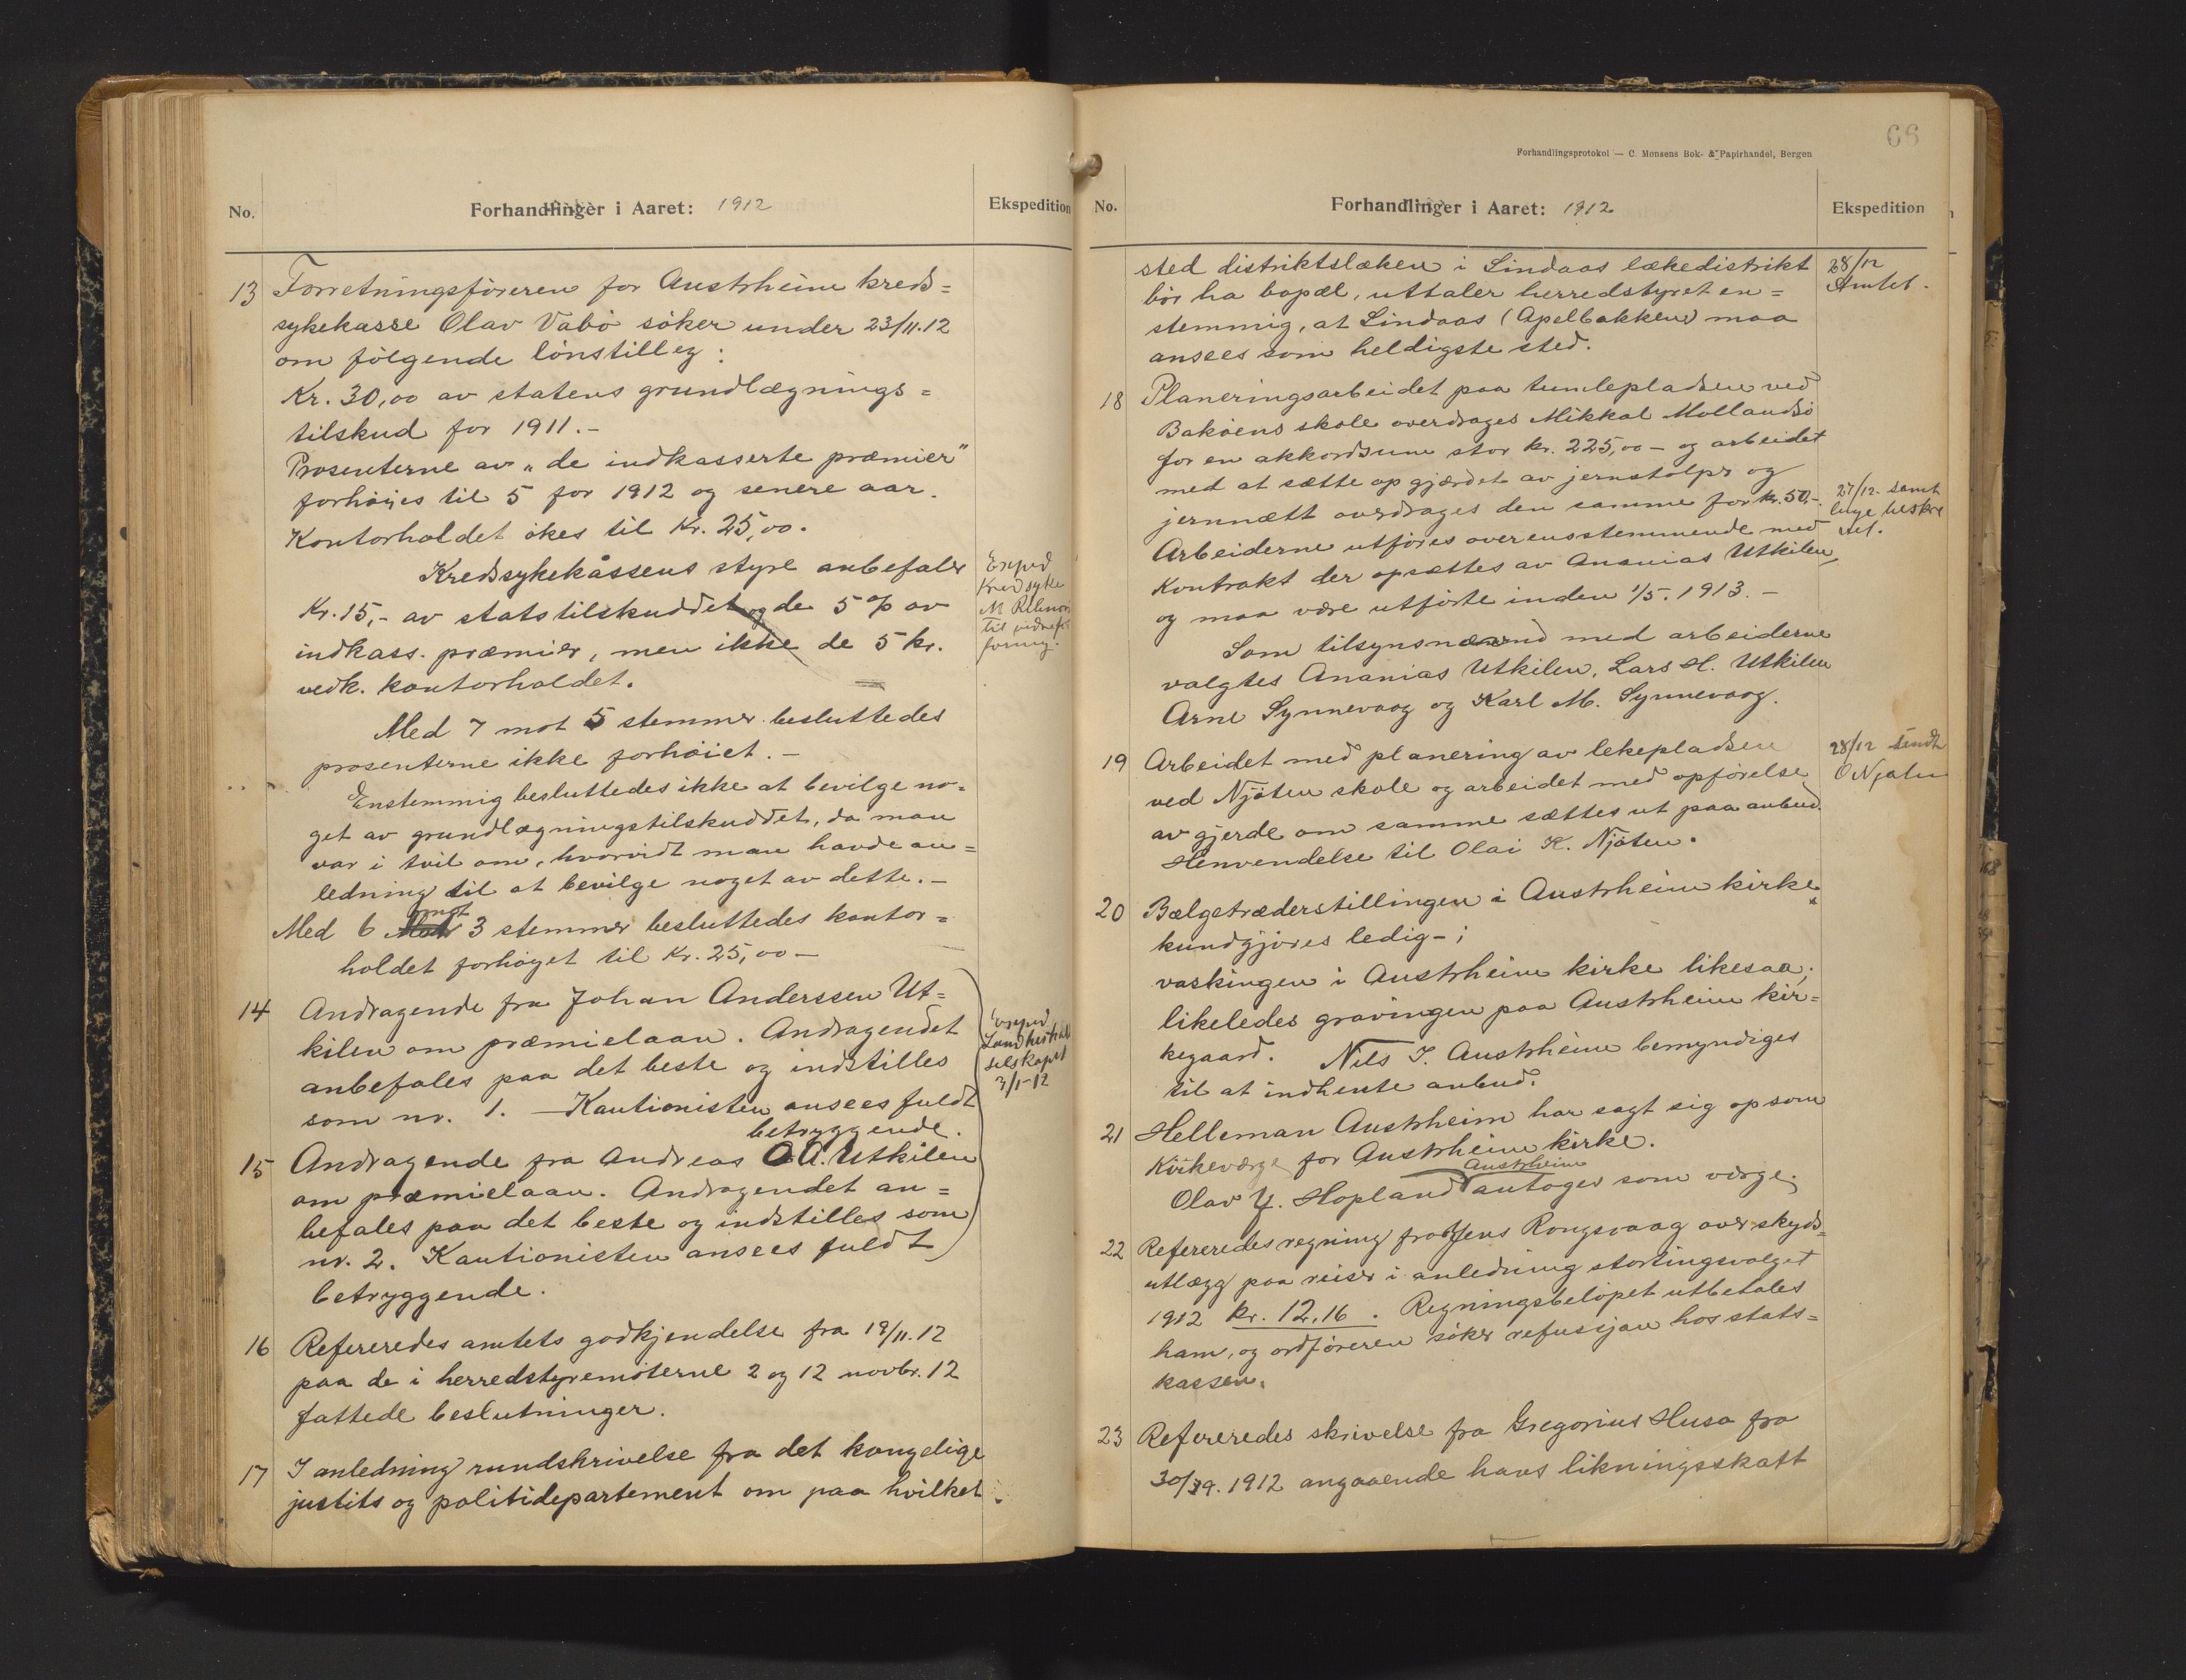 No.
Forhandlinger i Aaret: 1912
Ekspedition
13 Forretningsföreren for Austrheim kreds=
sykekasse Olav Vabö söker under 23/11.12
om fölgende lönstilleg:
Kr. 30,00 av statens grundlægnings=
tilskud for 1911.-
Prosenterne av "de indkasserte præmier"
forhöies til 5 for 1912 og senere aar.
Kontorholdet ökes til Kr. 25,00.
Kredssykekassens styre anbefaler
Kr. 15,- av statstilskuddet og de 5 % av
indkass. præmier, men ikke de 5 kr.
vedk. kontorholdet.
Exped
Kredsyke
til
foring.
Med 7 mot 5 stemmer besluttedes
prosenterne ikke forhöiet.-
Enstemmig besluttedes ikke at bevilge no=
get av grundlægningstilskuddet, da man
var i tvil om, hvorvidt man havde an=
ledning til at bevilge noget av dette.-
Med 6 mot 3 stemmer besluttedes kontor=
holdet forhöyet til Kr. 25,00-
14 Andragende fra Johan Anderssen Ut=
kilen om præmielaan. Andragendet
anbefales paa det beste og indstilles
som nr. 1. - Kautionisten ansees fuldt
betryggende.
Exped
selskapet
3/1-12
15 Andragende fra Andreas O A. Utkilen
om præmielaan. Andragendet an=
befales paa det beste og indstilles som
nr. 2. Kautionisten ansees fuldt
betryggende.
16 Refereredes amtets godkjendelse fra 19/11.12
paa de i herredstyremöterne 2 og 12 novbr. 12
fattede beslutninger.
17 I anledning rundskrivelse fra det kongelige
justits og politidepartement om paa hvilket
66
Forhandlingsprotokol — C. Monsens Bok- & Papirhandel, Bergen
No.
Forhandlinger i Aaret: 1912
Ekspedition
sted distriktslæken i Lindaas lækedistrikt
bör ha bopæl, uttaler herredstyret en=
stemmig, at Lindaas (Apelbakken) maa
ansees som heldigste sted.
28/12
Amtet.
18 Planeringsarbeidet paa tumlepladsen ved
Baköens skole overdrages Mikkal Mollandsö
for en akkordsum stor kr. 225,00- og arbeidet
med at sætte op gjærdet av jernstolpr og
jernnætt overdrages den samme for kr. 50,-
Arbeiderne utföres overensstemmende med
Kontrakt der opsættes av Ananias Utkilen,
og maa være utförte inden 1/5. 1913.-
27/12. samt
Som tilsynsnævnd med arbeiderne
valgtes Ananias Utkilen, Lars H. Utkilen
Arne Synnevaag og Karl M. Synnevaag.
19 Arbeidet med planering av lekepladsen
ved Njöten skole og arbeidet med opförelse
av gjerde om samme sættes ut paa anbud.
Henvendelse til Olai K. Njöten.
28/12 sendt
O Njøten
20 Bælgetræderstillingen i Austrheim kirke
kundgjöres ledig-;
vaskingen i Austrheim kirke likesaa;
likeledes gravingen paa Austrheim kir=
kegaard. Nils I. Austrheim bemyndiges
til at indhente anbud.
21 Helleman Austrheim har sagt sig op som
Kirkeværge for Austrheim kirke.
Olav Y. Hopland Austrheim antages som værge.
22 Refereredes regning fra Jens Rongevaag over skyds=
utlægg paa reiser i anledning stortingsvalget
1912 kr. 12,16. Regningsbelöpet utbetales
ham, og ordföreren söker refusjon hos stats=
kassen.
23 Refereredes skrivelse fra Gregorius Husa fra
30/9. 1912 angaaende hans likningsskatt